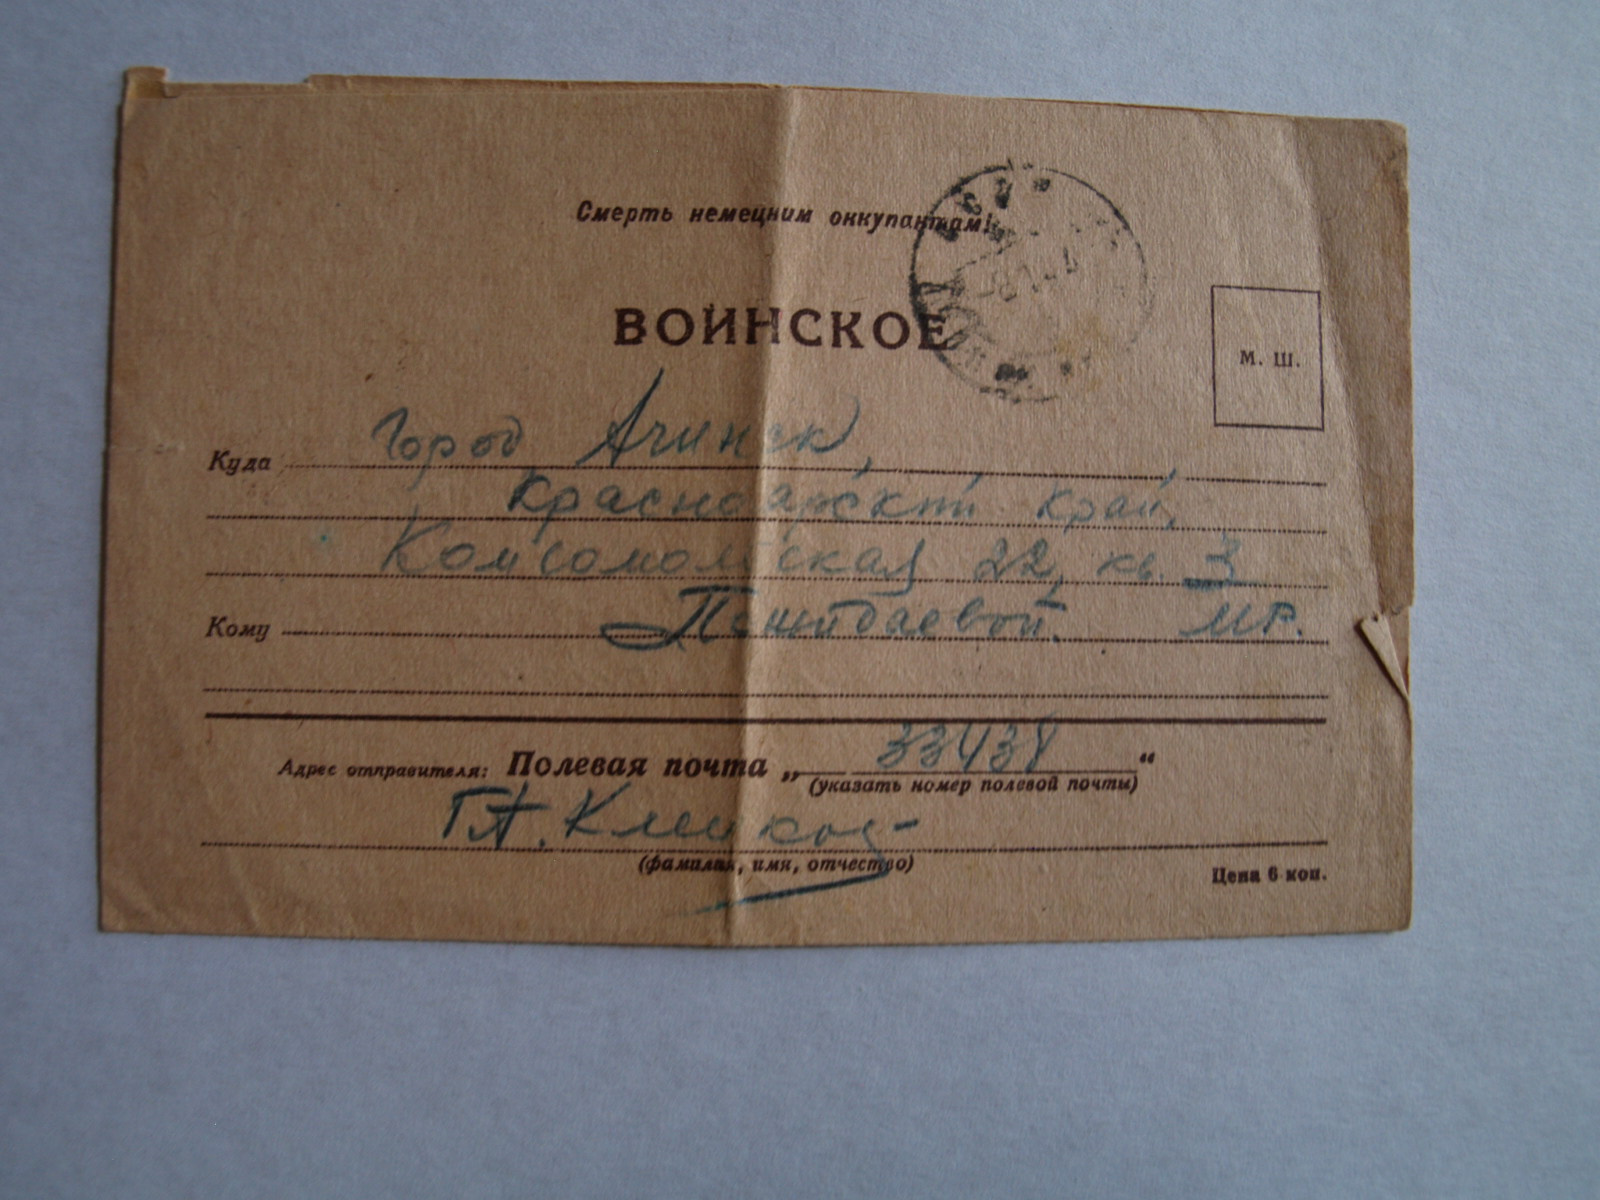 Смерть немецким оккупантам!
ВОИНСКОЕ
М. Ш.
Куда Город Ачинск,
Красноярский край,
Комсомольская 22, кв. 3
Кому М.Р.
Адрес отправителя: Полевая почта „ 33438 “
(указать номер полевой почты)
(фамилия, имя, отчество)
Цена 6 коп.